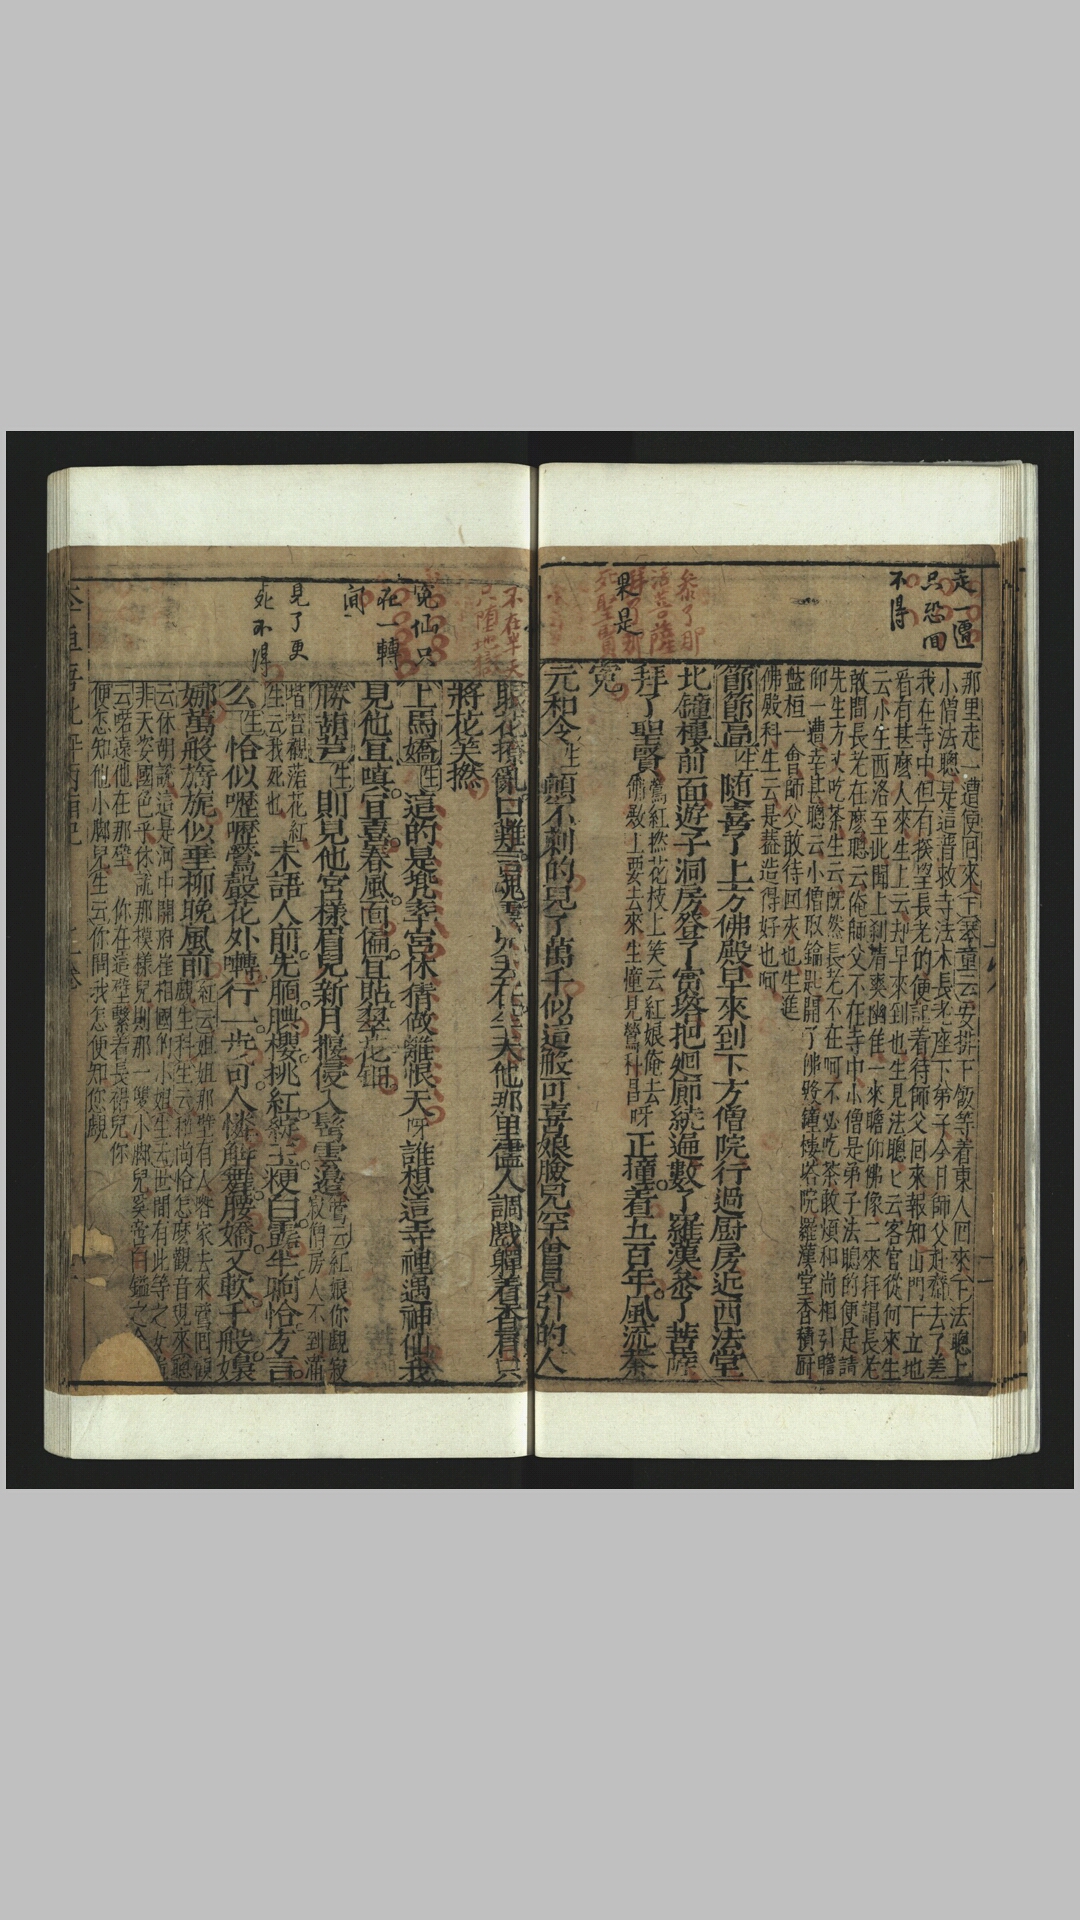 走一遭
只恐回
不得
那里走一遭便回來下琴童云安排下飯等着東人回來下法聰上
小僧法聰是這普救寺法本長老座下弟子今日師父赴齋去了差
我在寺中但有探望長老的便記着待師父回來報知山門下立地
看有甚麽人來生上云却早來到也生見法聰聰云客官從何來生
云小生西洛至此聞上刹清爽幽佳一來瞻仰佛像二來拜謁長老
敢問長老在麽聰云俺師父不在寺中小僧是弟子法聰的便是請
先生方丈吃茶生云既然長老不在呵不必吃茶敢煩和尚相引瞻
仰一遭幸甚聰云小僧取鑰匙開了佛殿鐘樓塔院羅漢堂香積厨
盤桓一會師父敢待回來也生進
佛殿科生云是蓋造得好也呵
節節高生随喜了上方佛殿早來到下方僧院行過厨房近西法堂
北鐘樓前面遊了洞房登了寶塔把廻廊繞遍數了羅漢叅了菩薩
叅了那
活菩薩
拜了那
死聖賢
果是
拜了聖賢鶯紅撚花枝上笑云紅娘俺去
佛殿上耍去來生撞見鶯科昌呀正撞着五百年風流業
寃
元和令生顛不剌的見了萬千似這般可喜娘臉兒罕曾見引的人
不在半天
只墮地獄
眼花撩亂口難言魂靈兒去在半天他那里儘人調戲軃着香肩只
將花笑撚
寃仙只
在一轉
間
上馬嬌生這的是兜率宮休猜做離恨天呀誰想這寺裡遇神仙我
見他宜嗔宜喜春風面偏宜貼翠花鈿
見了更
死不得
勝葫芦生則見他宮樣眉兒新月偃侵入鬢雲邉鶯云紅娘你覷寂
寂僧房人不到滿
堦苔襯落花紅
生云我死也未語人前先腼腆櫻桃紅綻玉粳白露半晌恰方言
么生恰似嚦嚦鶯聲花外囀行一步可人憐解舞腰嬌又軟千般裊
娜萬般旖旎似垂柳晚風前紅云姐姐那壁有人咱家去來鶯回顧
覷戲生科生云和尚恰怎麽觀音現來聰
云休胡說這是河中開府崔相國的小姐生云世間有此等之女豈
非天姿國色乎休說那模樣兒則那一雙小脚兒奚啻百鎰之金聰
云喏遠他在那壁你在這壁繫着長裙兒你
便怎知他小脚兒生云你問我怎便知您覷